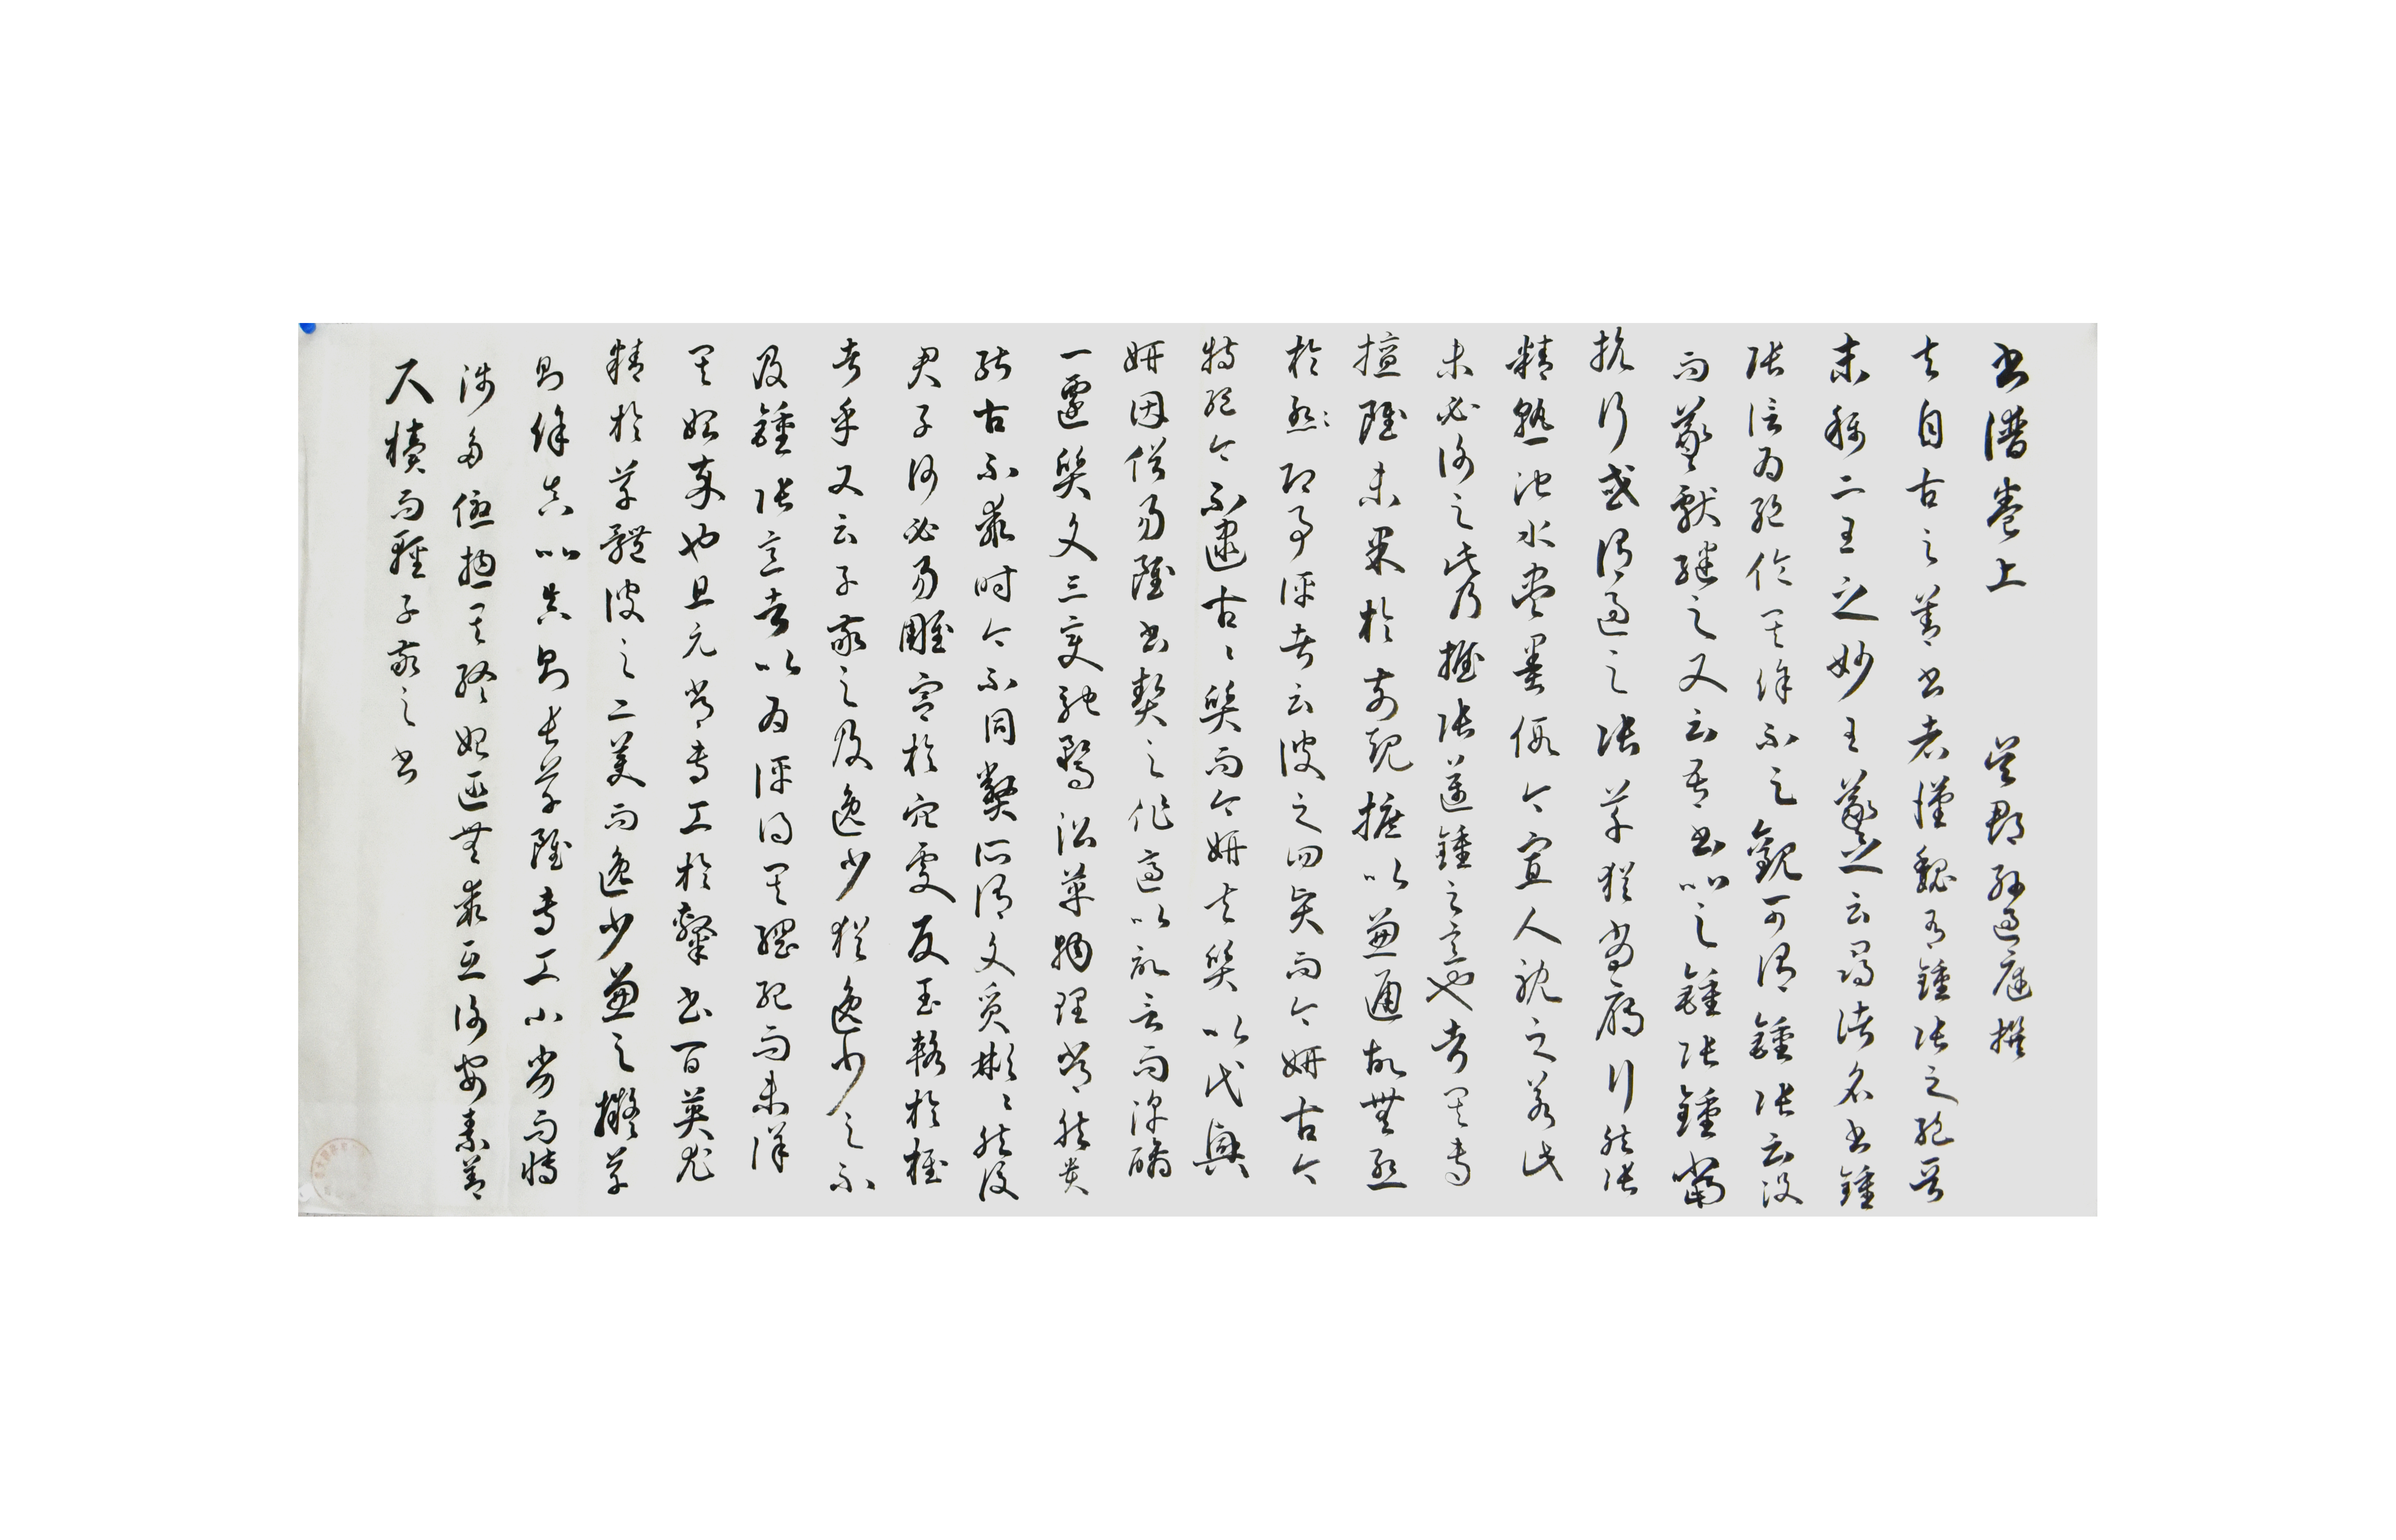 書譜卷上 吳郡孫過庭撰
夫自古之善書者漢魏有鍾張之絕晉
末稱二王之妙王羲之云尋諸名書鍾
張信為絕倫其餘不足觀可謂鍾張云沒
而羲獻繼之又云吾書比之鍾張鍾當
抗行或謂過之張草猶當雁行然張
精熟池水盡墨假令寡人耽之若此
未必謝之此乃推張邁鍾之意也考其專
擅雖未果於前規摭以兼通故無慙
於慙即事評者云彼之四賢而今妍古今
特絕今不逮古〻質而今妍夫質以代興
妍因俗易雖書契之作適以記言而淳醨
一遷質文三變馳騖沿革物理常然貴
能古不乖時今不同弊所謂文質彬〻然後
君子何必易雕宮於穴處反玉輅於椎
者乎又云子敬之及逸少猶逸少之不
及鍾張意者以為評得其綱紀而未詳
其始卒也且元常專工於隸書百英尤
精於草體彼之二美而逸少兼之擬草
則餘真比真則長草雖專工小劣而博
涉多優總其終始匪無乖互謝安素善
尺牘而輕子敬之書